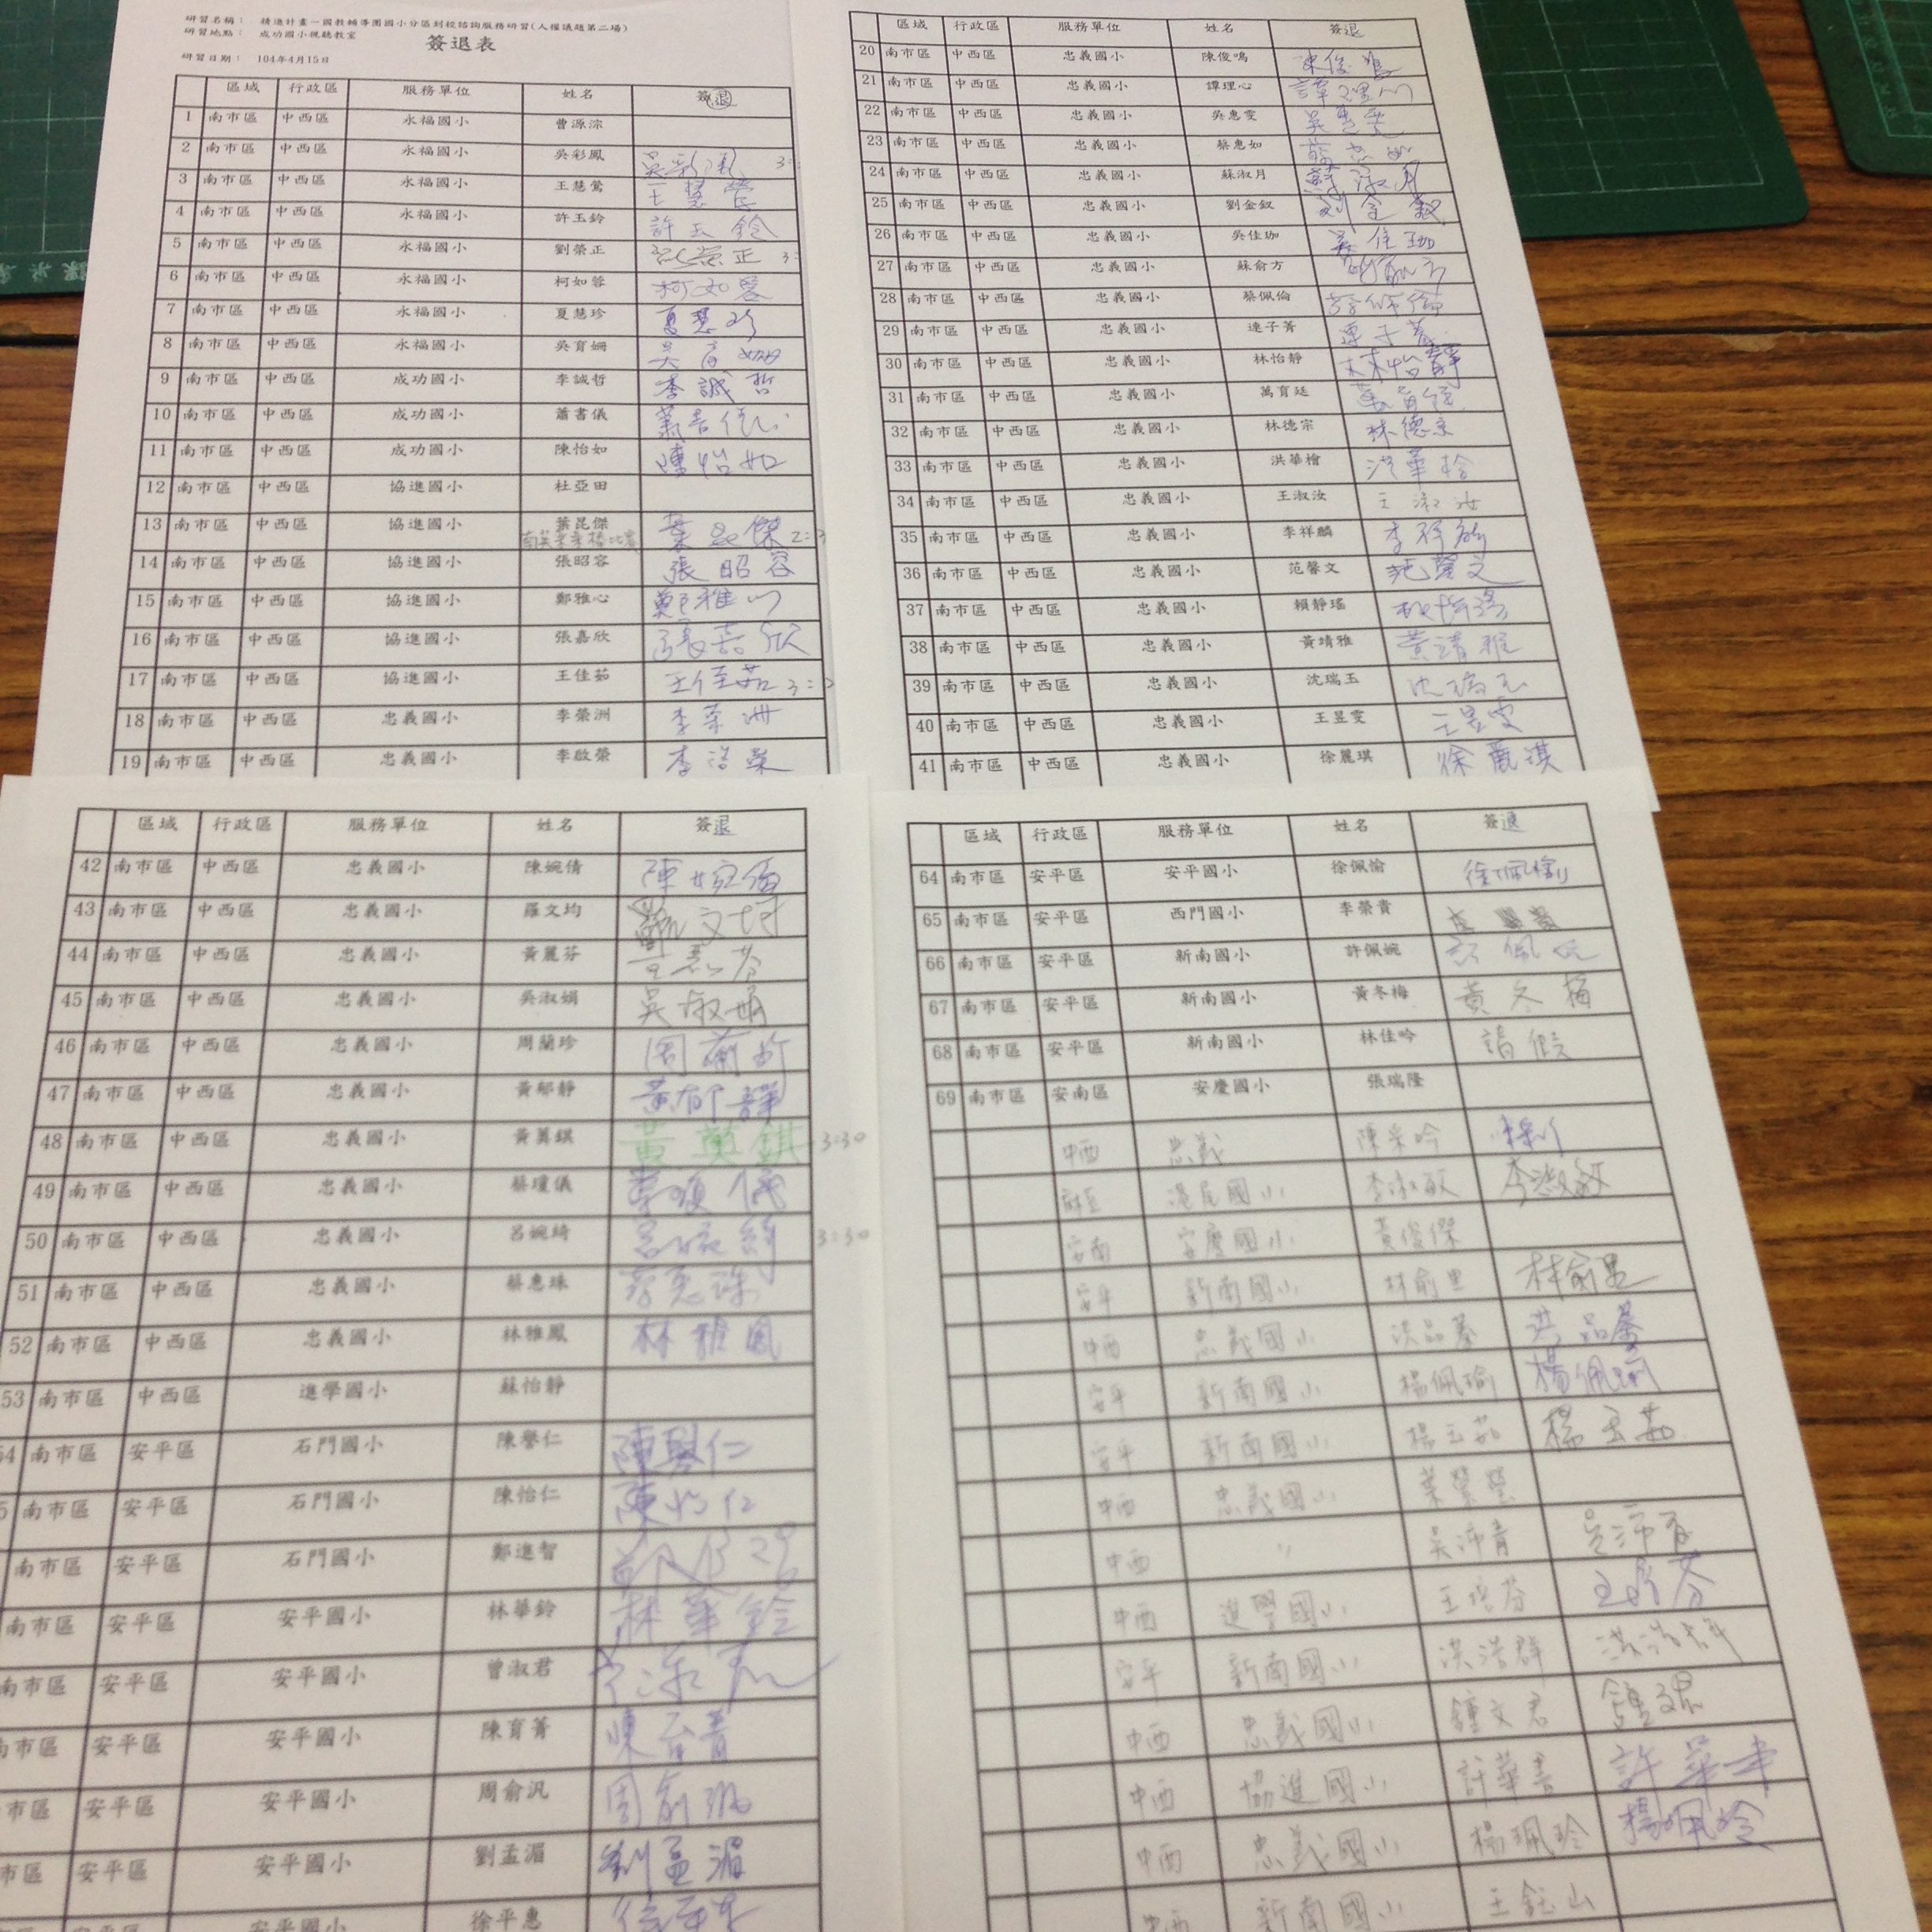 研習名稱： 精進計畫－國教輔導團國小分區到校諮詢服務研習(人權議題第二場)
研習地點： 成功國小視聽教室
簽退表
研習日期： 104年4月15日
區域 行政區 服務單位 姓名 簽退
1 南市區 中西區 永福國小 曹源淙
2 南市區 中西區 永福國小 吳彩鳳 吳彩鳳
3 南市區 中西區 永福國小 王慧鶯 王慧鶯
4 南市區 中西區 永福國小 許玉鈴 許玉鈴
5 南市區 中西區 永福國小 劉榮正 榮正
6 南市區 中西區 永福國小 柯如蓉 柯如蓉
7 南市區 中西區 永福國小 夏慧珍 夏慧珍
8 南市區 中西區 永福國小 吳育姍 吳育姍
9 南市區 中西區 成功國小 李誠哲 李誠哲
10 南市區 中西區 成功國小 蕭書儀 蕭書儀
11 南市區 中西區 成功國小 陳怡如 陳怡如
12 南市區 中西區 協進國小 杜亞田
13 南市區 中西區 協進國小 葉昆傑 葉昆傑
14 南市區 中西區 協進國小 張昭容 張昭容
15 南市區 中西區 協進國小 鄭雅心 鄭雅心
16 南市區 中西區 協進國小 張嘉欣 張嘉欣
17 南市區 中西區 協進國小 王佳茹 王佳茹
18 南市區 中西區 忠義國小 李榮洲 李榮洲
19 南市區 中西區 忠義國小 李啟榮 李啟榮
區域 行政區 服務單位 姓名 簽退
20 南市區 中西區 忠義國小 陳俊鳴 陳俊鳴
21 南市區 中西區 忠義國小 譚理心 譚理心
22 南市區 中西區 忠義國小 吳惠雯 吳惠雯
23 南市區 中西區 忠義國小 蔡惠如 蔡惠如
24 南市區 中西區 忠義國小 蘇淑月 蘇淑月
25 南市區 中西區 忠義國小 劉金釵 刘金釵
26 南市區 中西區 忠義國小 吳佳珈 吳佳珈
27 南市區 中西區 忠義國小 蘇俞方
28 南市區 中西區 忠義國小 蔡佩倫 蔡佩倫
29 南市區 中西區 忠義國小 連子菁 連子菁
30 南市區 中西區 忠義國小 林怡靜 林怡靜
31 南市區 中西區 忠義國小 萬育廷 萬育廷
32 南市區 中西區 忠義國小 林德宗 林德宗
33 南市區 中西區 忠義國小 洪華檜 洪華檜
34 南市區 中西區 忠義國小 王淑汝 王淑汝
35 南市區 中西區 忠義國小 李祥麟 李祥麟
36 南市區 中西區 忠義國小 范馨文 范馨文
37 南市區 中西區 忠義國小 賴靜瑤
38 南市區 中西區 忠義國小 黃靖雅 黃靖雅
39 南市區 中西區 忠義國小 沈瑞玉 沈瑞玉
40 南市區 中西區 忠義國小 王昱雯 王昱雯
41 南市區 中西區 忠義國小 徐麗琪 徐麗琪
區域 行政區 服務單位 姓名 簽退
42 南市區 中西區 忠義國小 陳婉倩 陳婉倩
43 南市區 中西區 忠義國小 羅文均 羅文均
44 南市區 中西區 忠義國小 黃麗芬
45 南市區 中西區 忠義國小 吳淑娟 吳淑娟
46 南市區 中西區 忠義國小 周蘭珍 周蘭珍
47 南市區 中西區 忠義國小 黃郁靜 黃郁靜
48 南市區 中西區 忠義國小 黃蓂錤 黃蓂錤 3:30
49 南市區 中西區 忠義國小 蔡瓊儀 蔡瓊儀
50 南市區 中西區 忠義國小 呂婉綺 呂婉綺 3:30
51 南市區 中西區 忠義國小 蔡惠珠 蔡惠珠
52 南市區 中西區 忠義國小 林雅鳳 林雅鳳
53 南市區 中西區 進學國小 蘇怡靜
54 南市區 安平區 石門國小 陳譽仁 陳譽仁
5 南市區 安平區 石門國小 陳怡仁 陳怡仁
南市區 安平區 石門國小 鄭進智
南市區 安平區 安平國小 林華鈴 林華鈴
南市區 安平區 安平國小 曾淑君
南市區 安平區 安平國小 陳育菁 陳育菁
市區 安平區 安平國小 周俞汎
市區 安平區 安平國小 劉孟湄 劉孟湄
安平區 安平國小 徐平惠 徐平惠
區域 行政區 服務單位 姓名 簽退
64 南市區 安平區 安平國小 徐佩愉 徐佩愉
65 南市區 安平區 西門國小 李榮貴
66 南市區 安平區 新南國小 許佩婉 許佩婉
67 南市區 安平區 新南國小 黃冬梅 黃冬梅
68 南市區 安平區 新南國小 林佳吟 請假
69 南市區 安南區 安慶國小 張瑞隆
中西 忠義 陳采吟
麻豆 港尾國小 李淑敏 李淑敏
安南 安慶國小 黃俊傑
安平 新南國小 林俞里 林俞里
中西 忠義國小 洪品蓁 洪品蓁
安平 新南國小 楊佩瑜 楊佩瑜
安平 新南國小 楊玉茹 楊玉茹
中西 忠義國小 葉瑩瑩
中西 〃 吳沛青 吳沛青
中西 進學國小 王培芬 王培芬
安平 新南國小 洪浩群 洪浩群
中西 忠義國小 鍾文君
中西 協進國小 許華書 許華書
中西 忠義國小 楊珮玲 楊珮玲
中西 新南國小 王鈺山